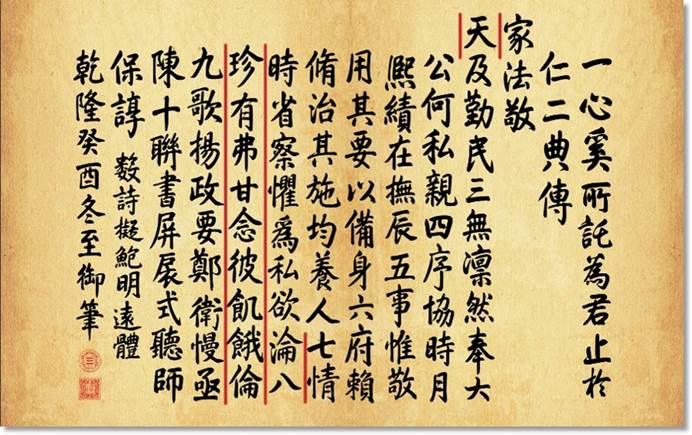 一心奚所託為君止於
仁二典傳
家法敬
天及勤民三無凜然奉大
公何私親四序協時月
熈績在撫辰五事惟敬
用其要以備身六府賴
脩治其施均養人七情
時省察懼爲私欲淪八
珍有弗甘念彼飢餓倫
九歌揚政要鄭衛慢亟
陳十聯書屏扆式聽師
保諄 數詩擬鮑明遠體
乾隆癸酉冬至御筆